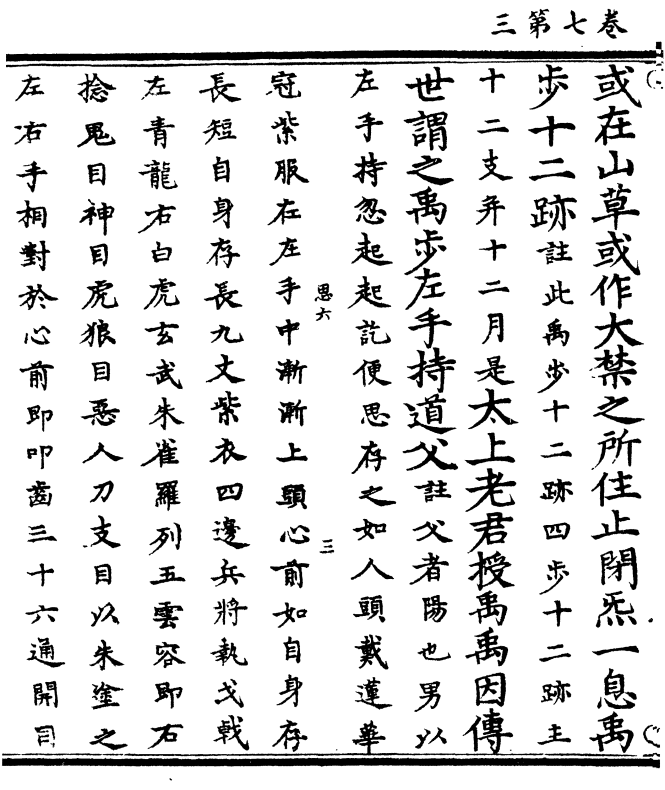 三第七卷
或在山草或作大禁之所住止閉炁一息禹
步十二跡註此禹步十二跡四步十二跡主
十二支并十二月是太上老君授禹禹因傳
世謂之禹步左手持道父註父者陽也男以
左手持忽起起訖便思存之如人頭戴蓮華
思六 三
冠紫服在左手中漸漸上頭心前如自身存
長短自身存長九丈紫衣四邊兵將執戈戟
左青龍右白虎玄武朱雀羅列五雲容即右
捻鬼目神目虎狼目惡人刀支目以朱塗之
左右手相對於心前即叩齒三十六通開目